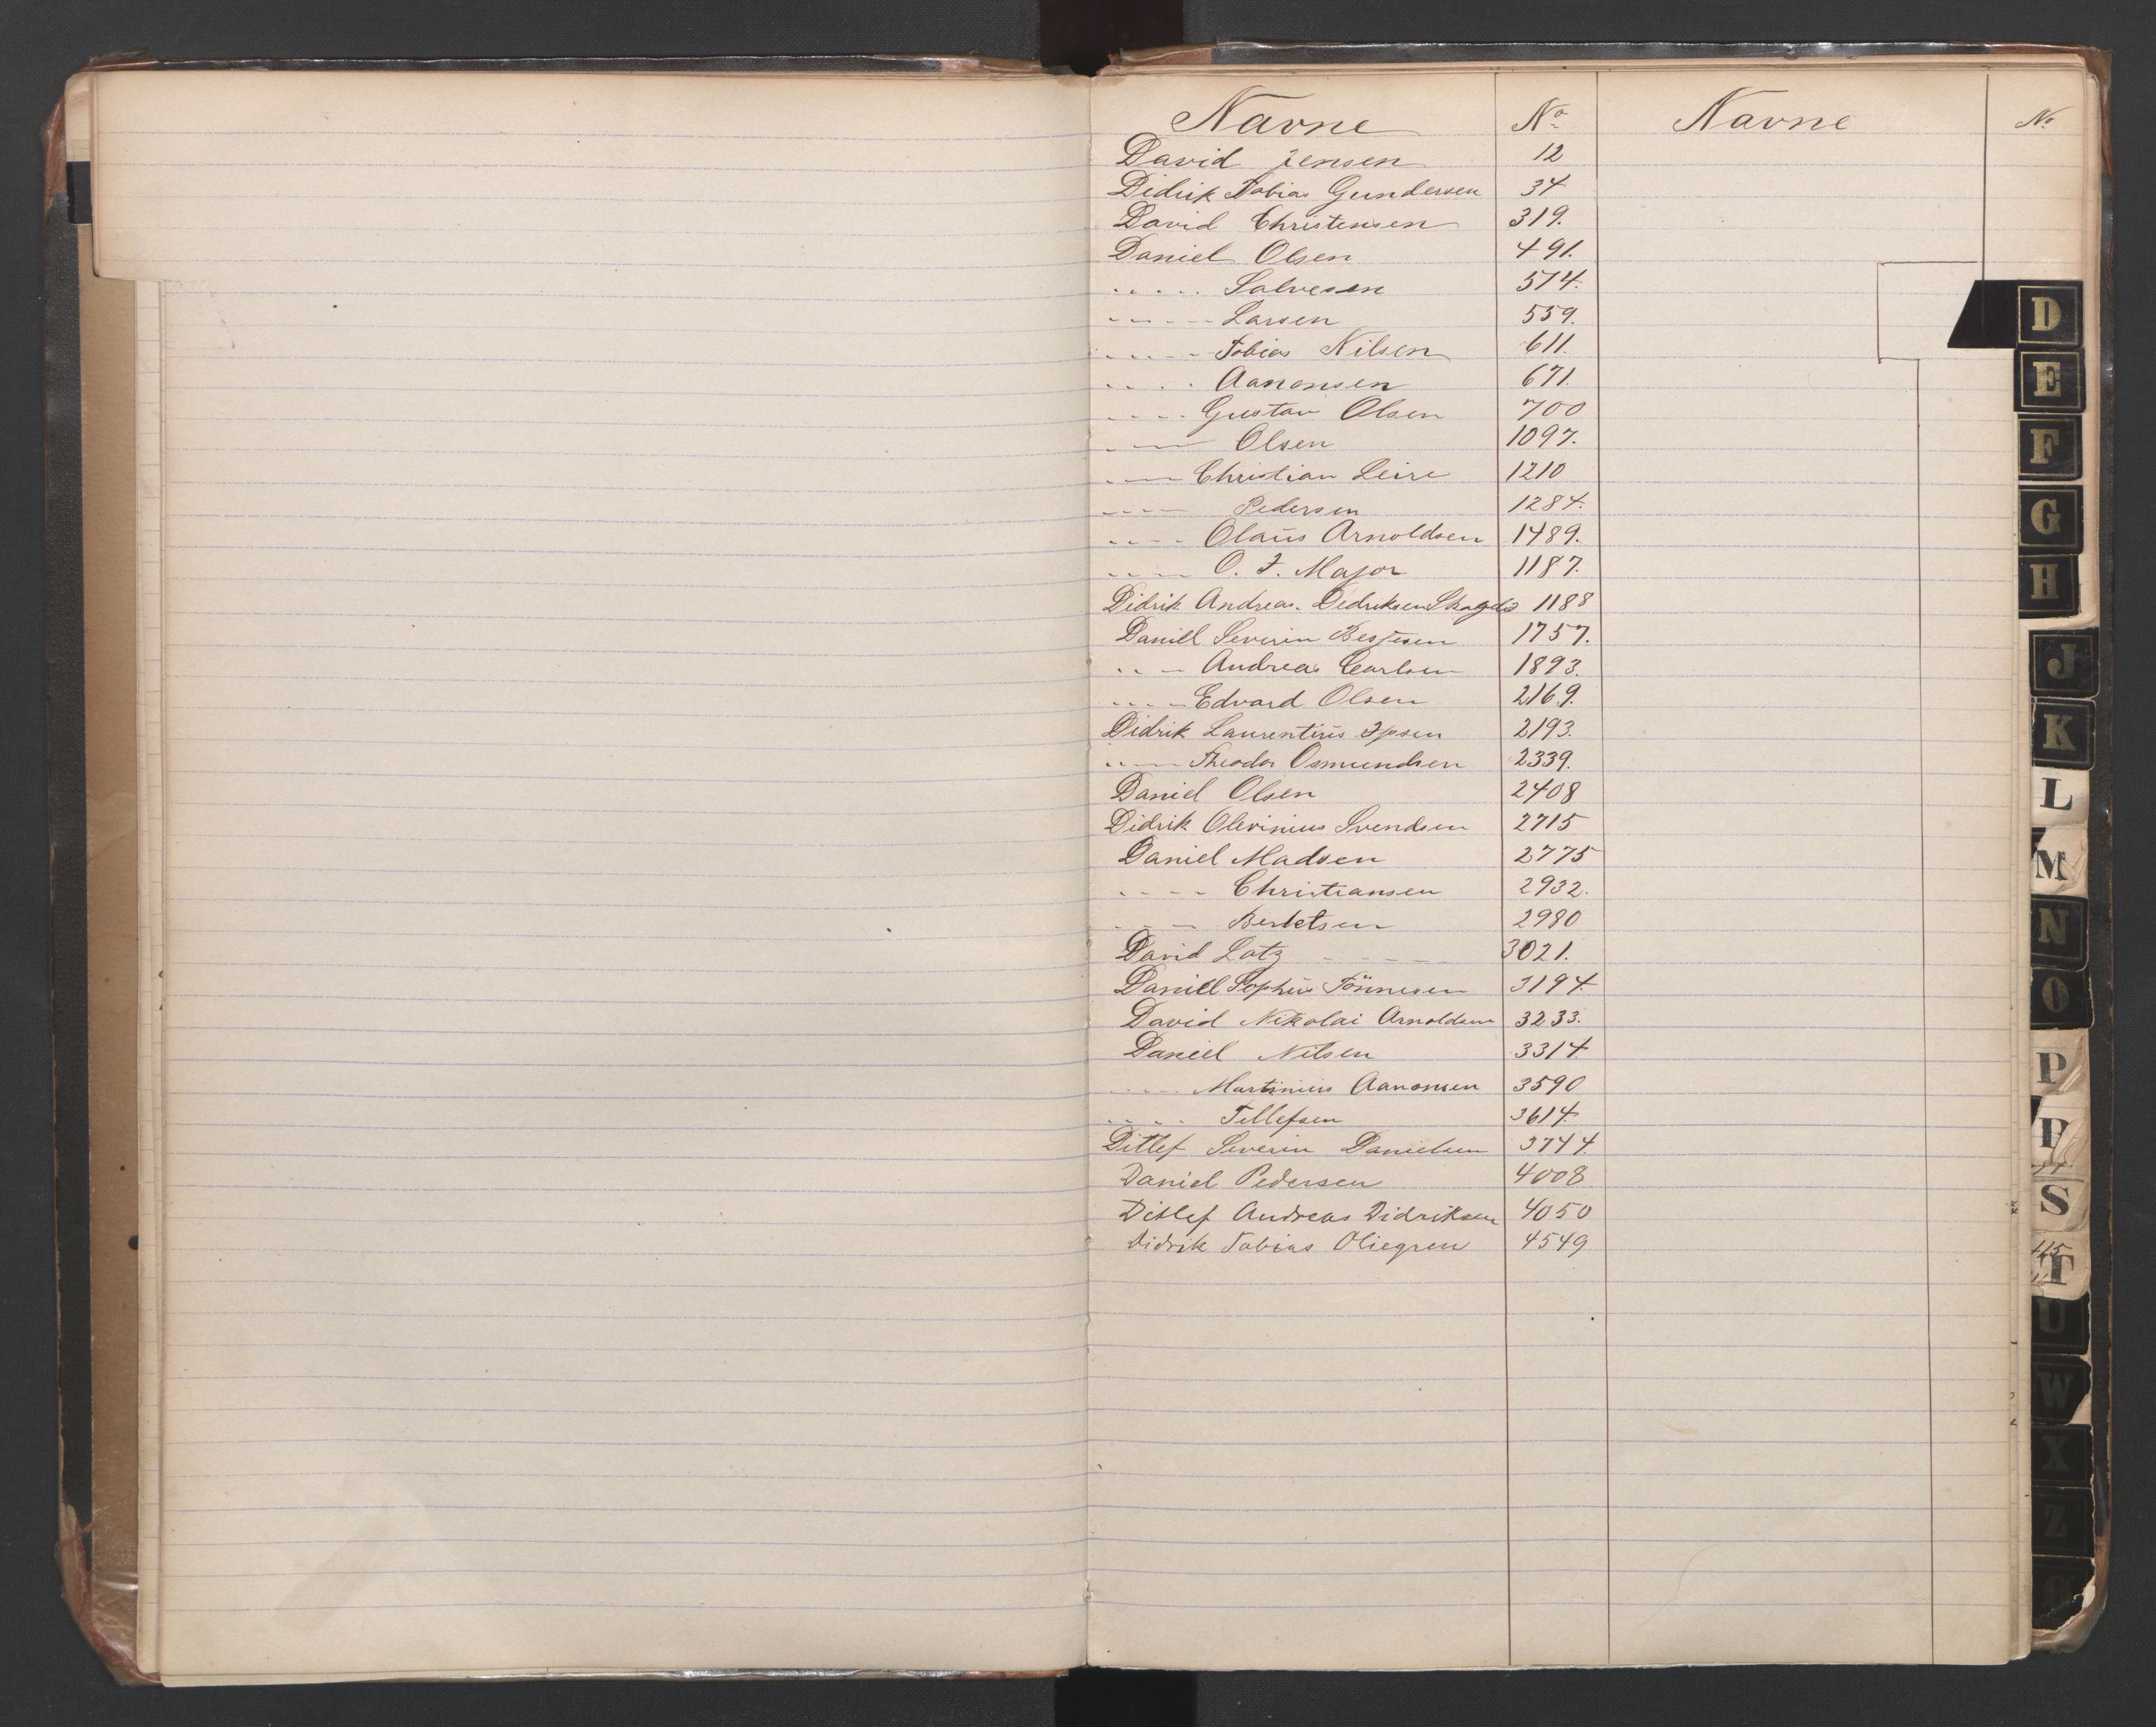 Navne Nº Navne Nº
David Jensen 12
Didrik Tobias Gundersen 34
David Christensen 319.
Daniel Olsen 491.
..... Salvesen 574.
----- Larsen 559.
----- Tobias Nilsen 611.
.... Aanonsen 671.
.... Gustav Olsen 700
---- Olsen 1097.
---- Christian Leire 1210
---- Pedersen 1284.
.... Olaüs Arnoldsen 1489.
---- O. T. Major 1187.
Didrik Andreas. Didriksen 1188
Daniel Severin 1757.
... Andreas Carlsen 1893.
.... Edvard Olsen 2169.
Didrik Laurentiüs Ipsen 2193.
---- Theodor Osmundsen 2339.
Daniel Olsen 2408
Didrik Olevinius Svendsen 2715
Daniel Madsen 2775
.... Christiansen 2932.
---- Berletsen 2980
David Lotz - - - - 3021.
Daniel Sophüs Tönnesen 3194.
David Nikolai Arnoldsen 3233.
Daniel Nilsen 3314
---- Martinius Aanonsen 3590
.... Tellefsen 3614.
Ditlef Severin Danielsen 3744.
Daniel Pedersen 4008
Ditlef Andreas Didriksen 4050
Didrik Tobias Oliegren 4549
D
E
F
G
H
J
K
L
M
N
O
P
S
T
U
W
X
Z